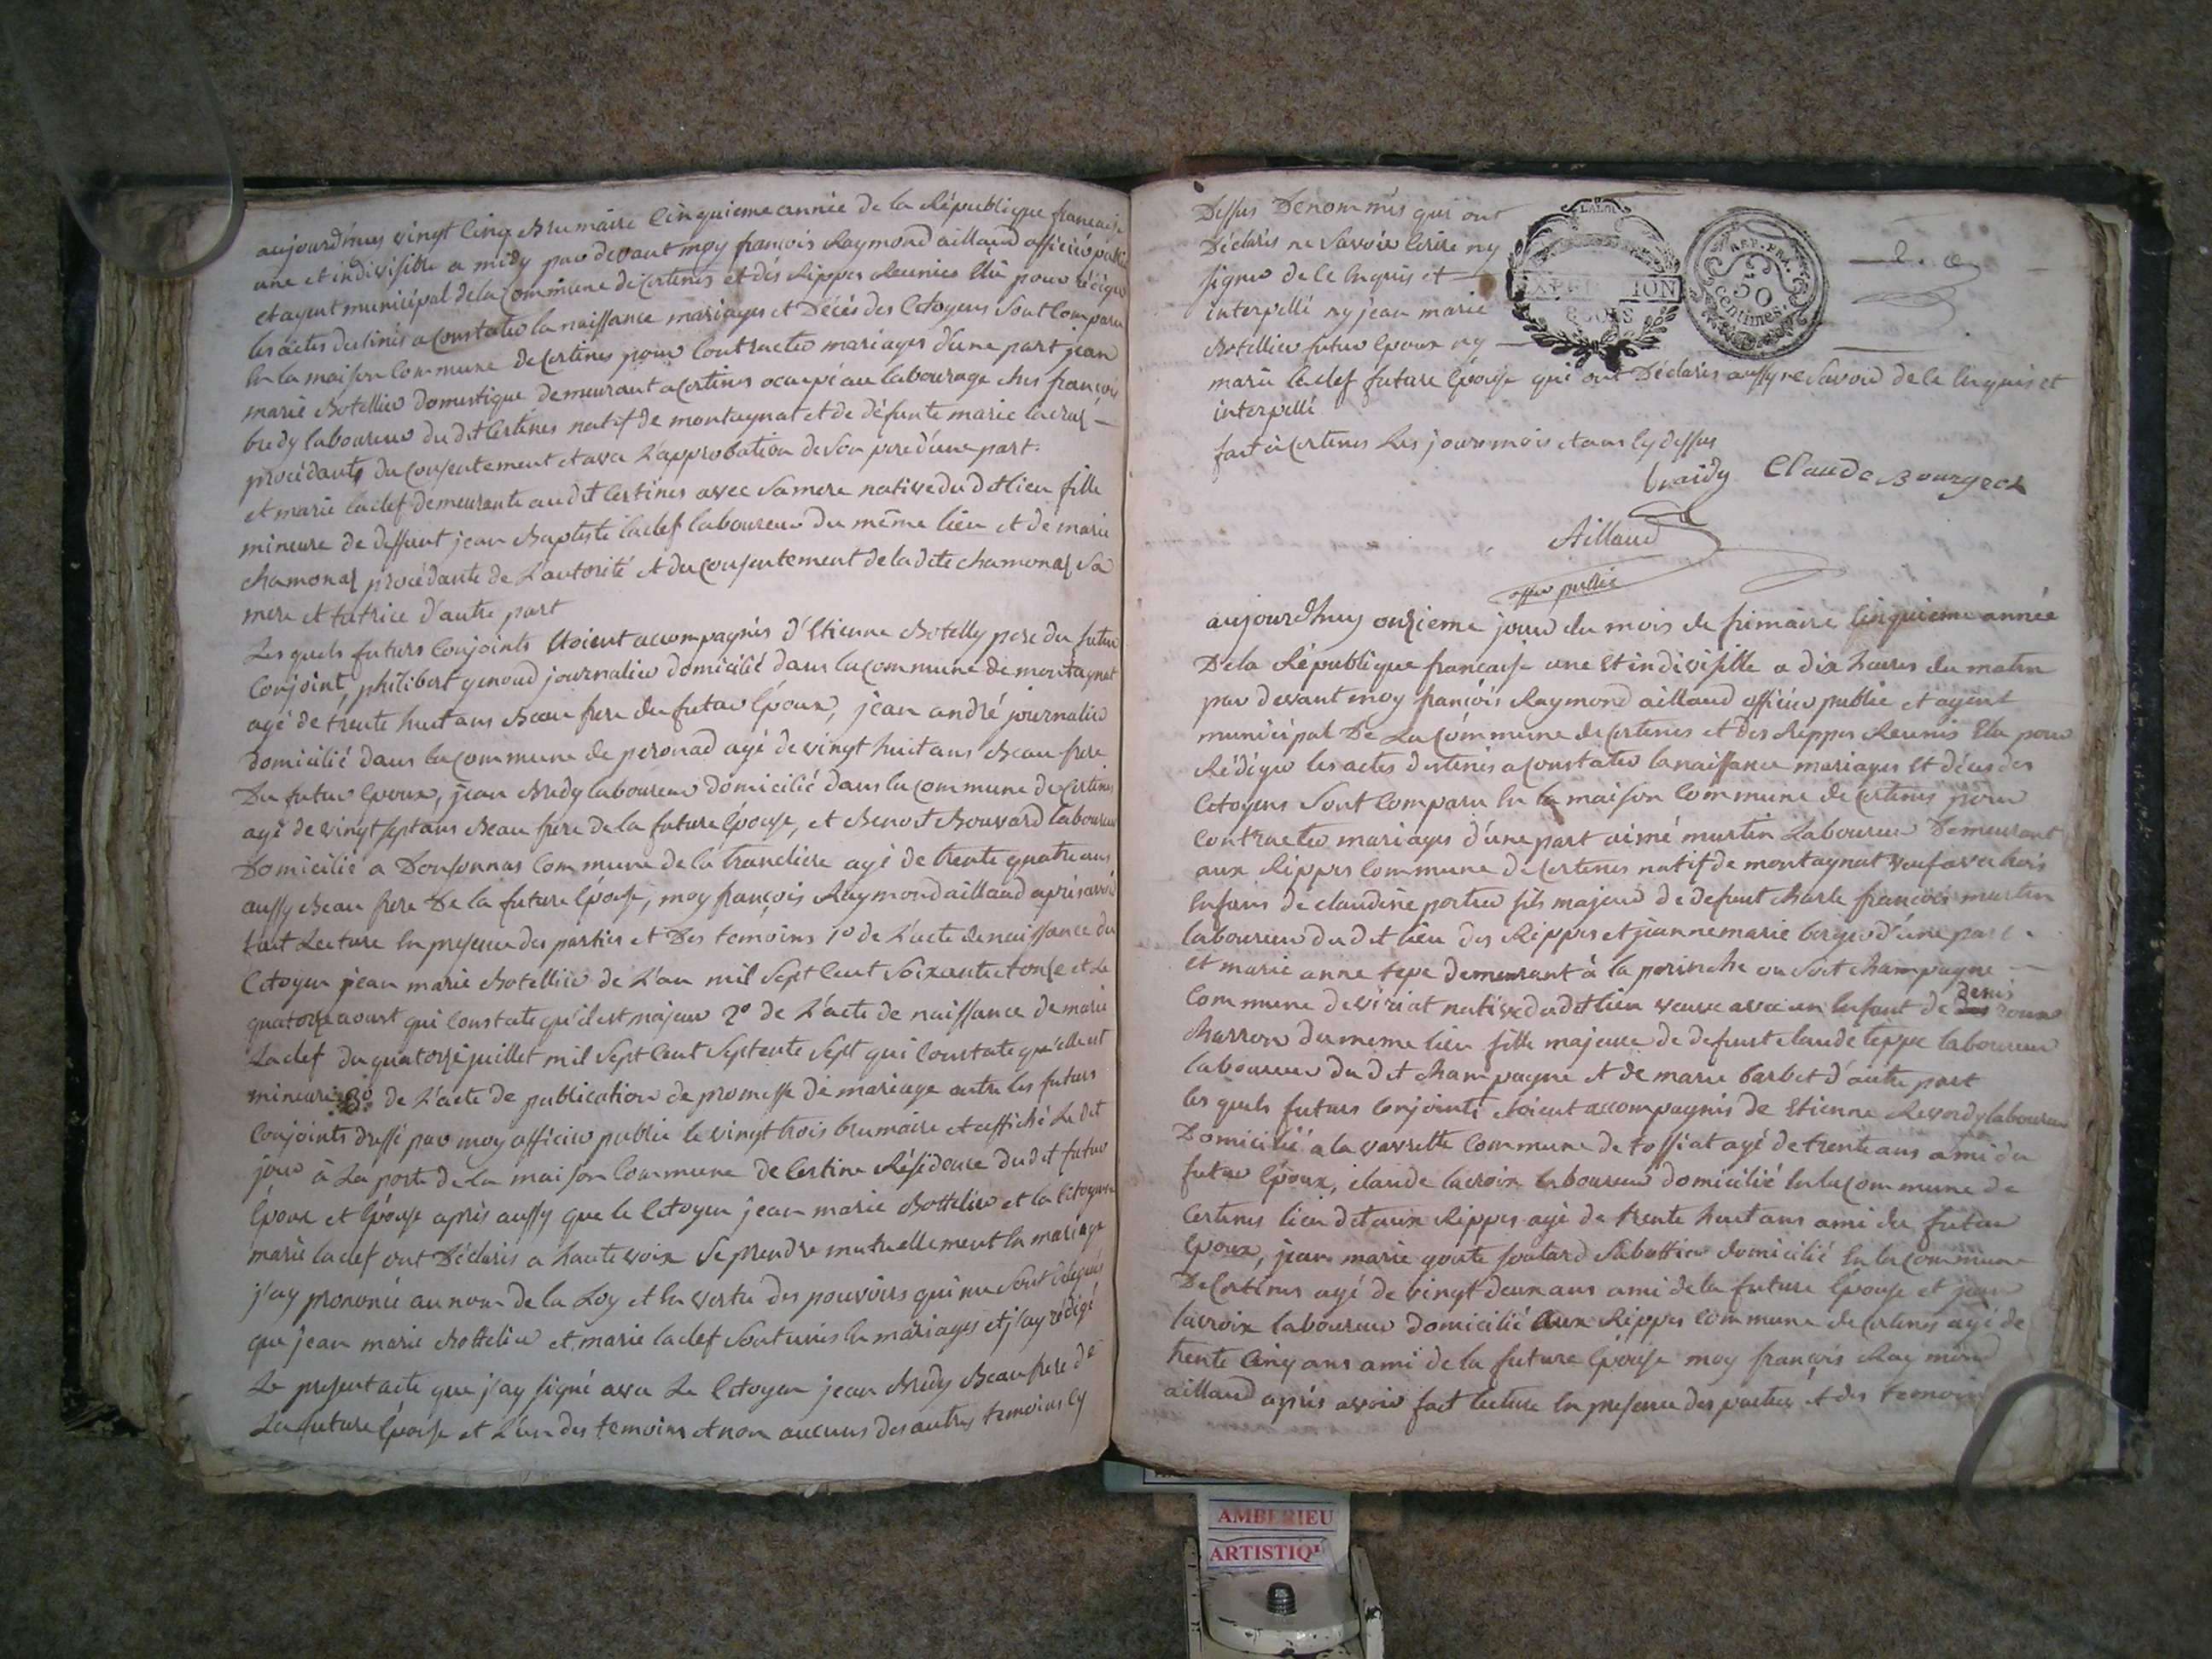 aujourd'huy vingt cinq Brumaire cinquieme année de la République francaise
une et indivisible a midy par devant moy françois Raymond aillaud officier public
et agent municipal de la commune de certines et dés Rippes Reunies Elu pour rédiger
les actes destinés a constater la naissance mariages et Décès des citoyens sont comparu
En la maison commune de Certines pour contracter mariages d'une part jean
marie Botellier domestique demeurant a certines ocupé au labourage chés françois
bredy laboureur du dit certines natif de montagnat et de défunte marie lacrus
procédants du consentement et avec l'approbation de son pere d'une part.
et marie laclef demeurante audit certines avec sa mere native du dit lieu fille
mineure de deffunt jean Baptiste laclef laboureur du même lieu et de marie
chamonas procédante de l'autorité et du consentement de la dite chamonas sa
mere et tutrice d'autre part
Les quels futurs conjoints Etoient accompagnés d'Etienne Botelly pere du futur
conjoint, philibert genoud journalier domicilié dans la commune de montagnat
agé de trente huit ans Beau frere du futur Epoux, jean andré journalier
domicilié dans la commune de peronad agé de vingt huit ans Beau frere
Du futur Epoux, jean Bredy laboureur domicilié dans la commune de certines
agé de vingt sept ans Beau frere de la future Epouse, et Benoit Bouvard laboureur
Domicilié a Donsonnas commune de la tranclière agé de trente quatre ans
aussy Beau frere De la future Epouse, moy françois Raymond aillaud aprés avoir
fait Lecture En presence des parties et Des temoins 1º de L'acte de naissance du
citoyen jean marie Botellier de L'an mil sept cent soixante et onse et le
quatorze aoust qui constate qu'il est majeur 2º de L'acte de naissance de marie
Laclef du quatorze juillet mil sept cent septente sept qui constate qu'elle est
mineure 3º de L'acte de publication de promesse de mariage entre les futurs
conjoints dressé par moy officier public le vingt trois brumaire et affiché Le dit
jour à La porte de La maison commune de certine Résidence du dit futur
Epoux et Epouse après aussy que le citoyen jean marie Bottelier et la citoyenne
marie laclef ont Déclarés a haute voix se prendre mutuellement En mariage
j'ay prononcé au nom de la Loy et En vertu des pouvoirs qui me sont délégués
que jean marie Bottelier et marie laclef sont unis En mariages et j'ay rédigé
Le present acte que j'ay signé avec Le citoyen jean Bredy Beau frere de
La future Epouse et L'un des temoins et non aucuns des autres temoins cy
Dessus Dénommés qui ont
Déclarés ne savoir Ecrire ny
signer de ce Enquis et
interpellé ny jean marie
Botellier futur Epoux ny
marie laclef future Epouse qui ont Déclarés aussy ne savoir de ce Enquis et
interpellé
fait à certines Les jours mois et ans cy dessus
braidy Claude Bourgeois
Aillaud
offier public
REP. FRA.
50
centimes
aujourdhuy onzieme jour du mois de frimaire cinquieme année
De la République francaise une Et indivisible a dix heures du matin
par devant moy françois Raymond aillaud officier public et agent
municipal De La commune de certines et des Rippes Reunis Elu pour
Rédiger les actes destinés a constater la naissance mariages Et décès des
citoyens sont comparu En la maison commune de certines pour
contracter mariages d'une part aimé martin Laboureur Demeurant
aux Rippes commune de certines natif de montagnat veuf avec trois
Enfans de claudine portier fils majeur de defunt charle françois martin
laboureur du dit lieu des Rippes et jeanne marie berger d'une part.
et marie anne tepe demeurant à la perinche ou soit champagne
commune de viriat native du dit lieu veuve avec un Enfant de denis roux
charron du meme lieu fille majeure de defunt claude teppe laboureur
laboureur du dit champagne et de marie barbet d'autre part
les quels futurs conjoints etoient accompagnés de Etienne Revordy laboureur
Domicilié a la vavrette commune de tossiat agé de trente ans ami du
futur Epoux, claude lacroix laboureur domicilié En la commune de
certines lieu dit aux Rippes agé de trente huit ans ami du futur
Epoux, jean marie goute soulard sabottier domicilié En la commune
De Certines agé de vingt deux ans ami de la future Epouse et jean
lacroix laboureur domicilié Aux Rippes commune de certines agé de
trente cinq ans ami de la future Epouse moy françois Raymond
aillaud aprés avoir fait lecture En presence des parties et des temoins
AMBERIEU
ARTISTIQU